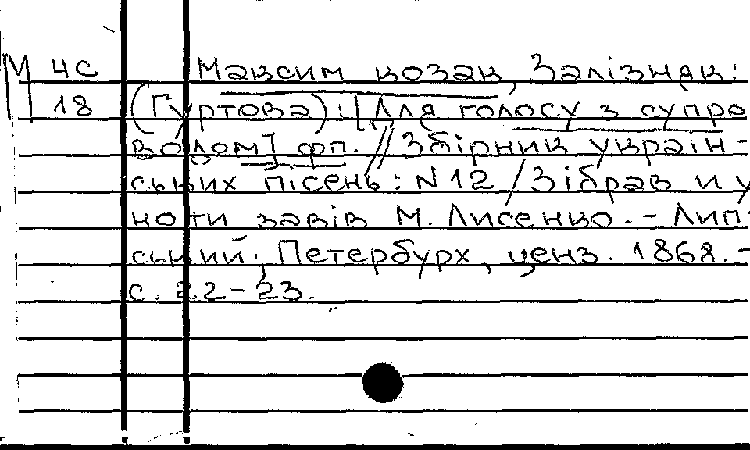 М 4С Максим козак, Залізняк:
18 (Гуртова): [Для голосу з супро
водом] фп. // Збірник україн-
ських пісень: N 12 / Зібрав и у
ноти завів М. Лисенко. - Лип
ський; Петербурх, ценз. 1868. -
с. 22-23.